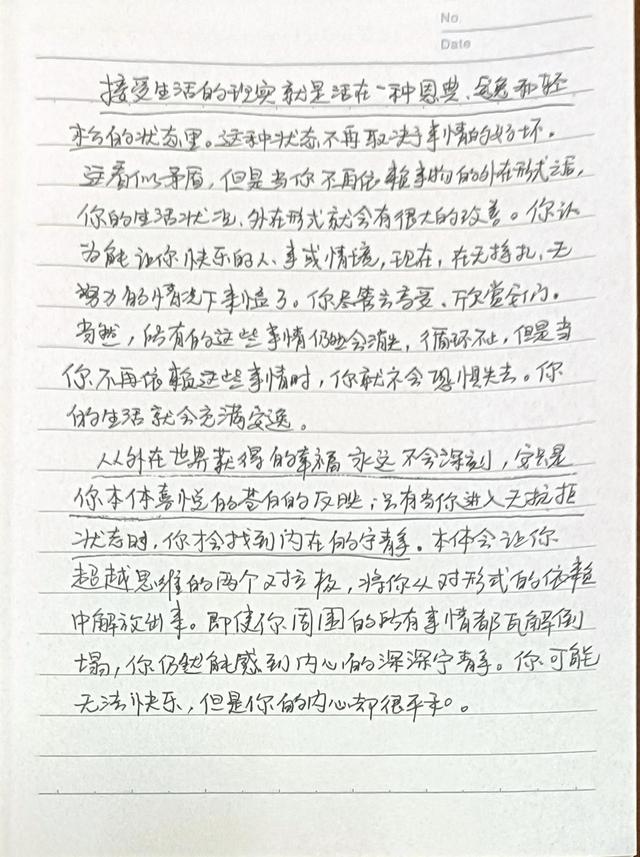 No.
Date
接受生活的现实就是活在一种恩典、安逸和轻
松的状态里。这种状态不再取决于事情的好坏。
这看似矛盾，但是当你不再依赖事物的外在形式之后，
你的生活状况、外在形式就会有很大的改善。你认
为能让你快乐的人、事或情境，现在，在无挣扎、无
努力的情况下事情了。你尽管去享受、欣赏它们。
当然，所有的这些事情仍然会消失，循环不止，但是当
你不再依赖这些事情时，你就不会恐惧失去。你
的生活就会充满安逸。
从外在世界获得的幸福永远不会深刻，它只是
你本体喜悦的苍白的反映；只有当你进入无抗拒
状态时，你才会找到内在的宁静。本体会让你
超越思维的两个对立极，将你从对形式的依赖
中解放出来。即使你周围的所有事情都瓦解倒
塌，你仍然能感到内心的深深宁静。你可能
无法快乐，但是你的内心却很平和。